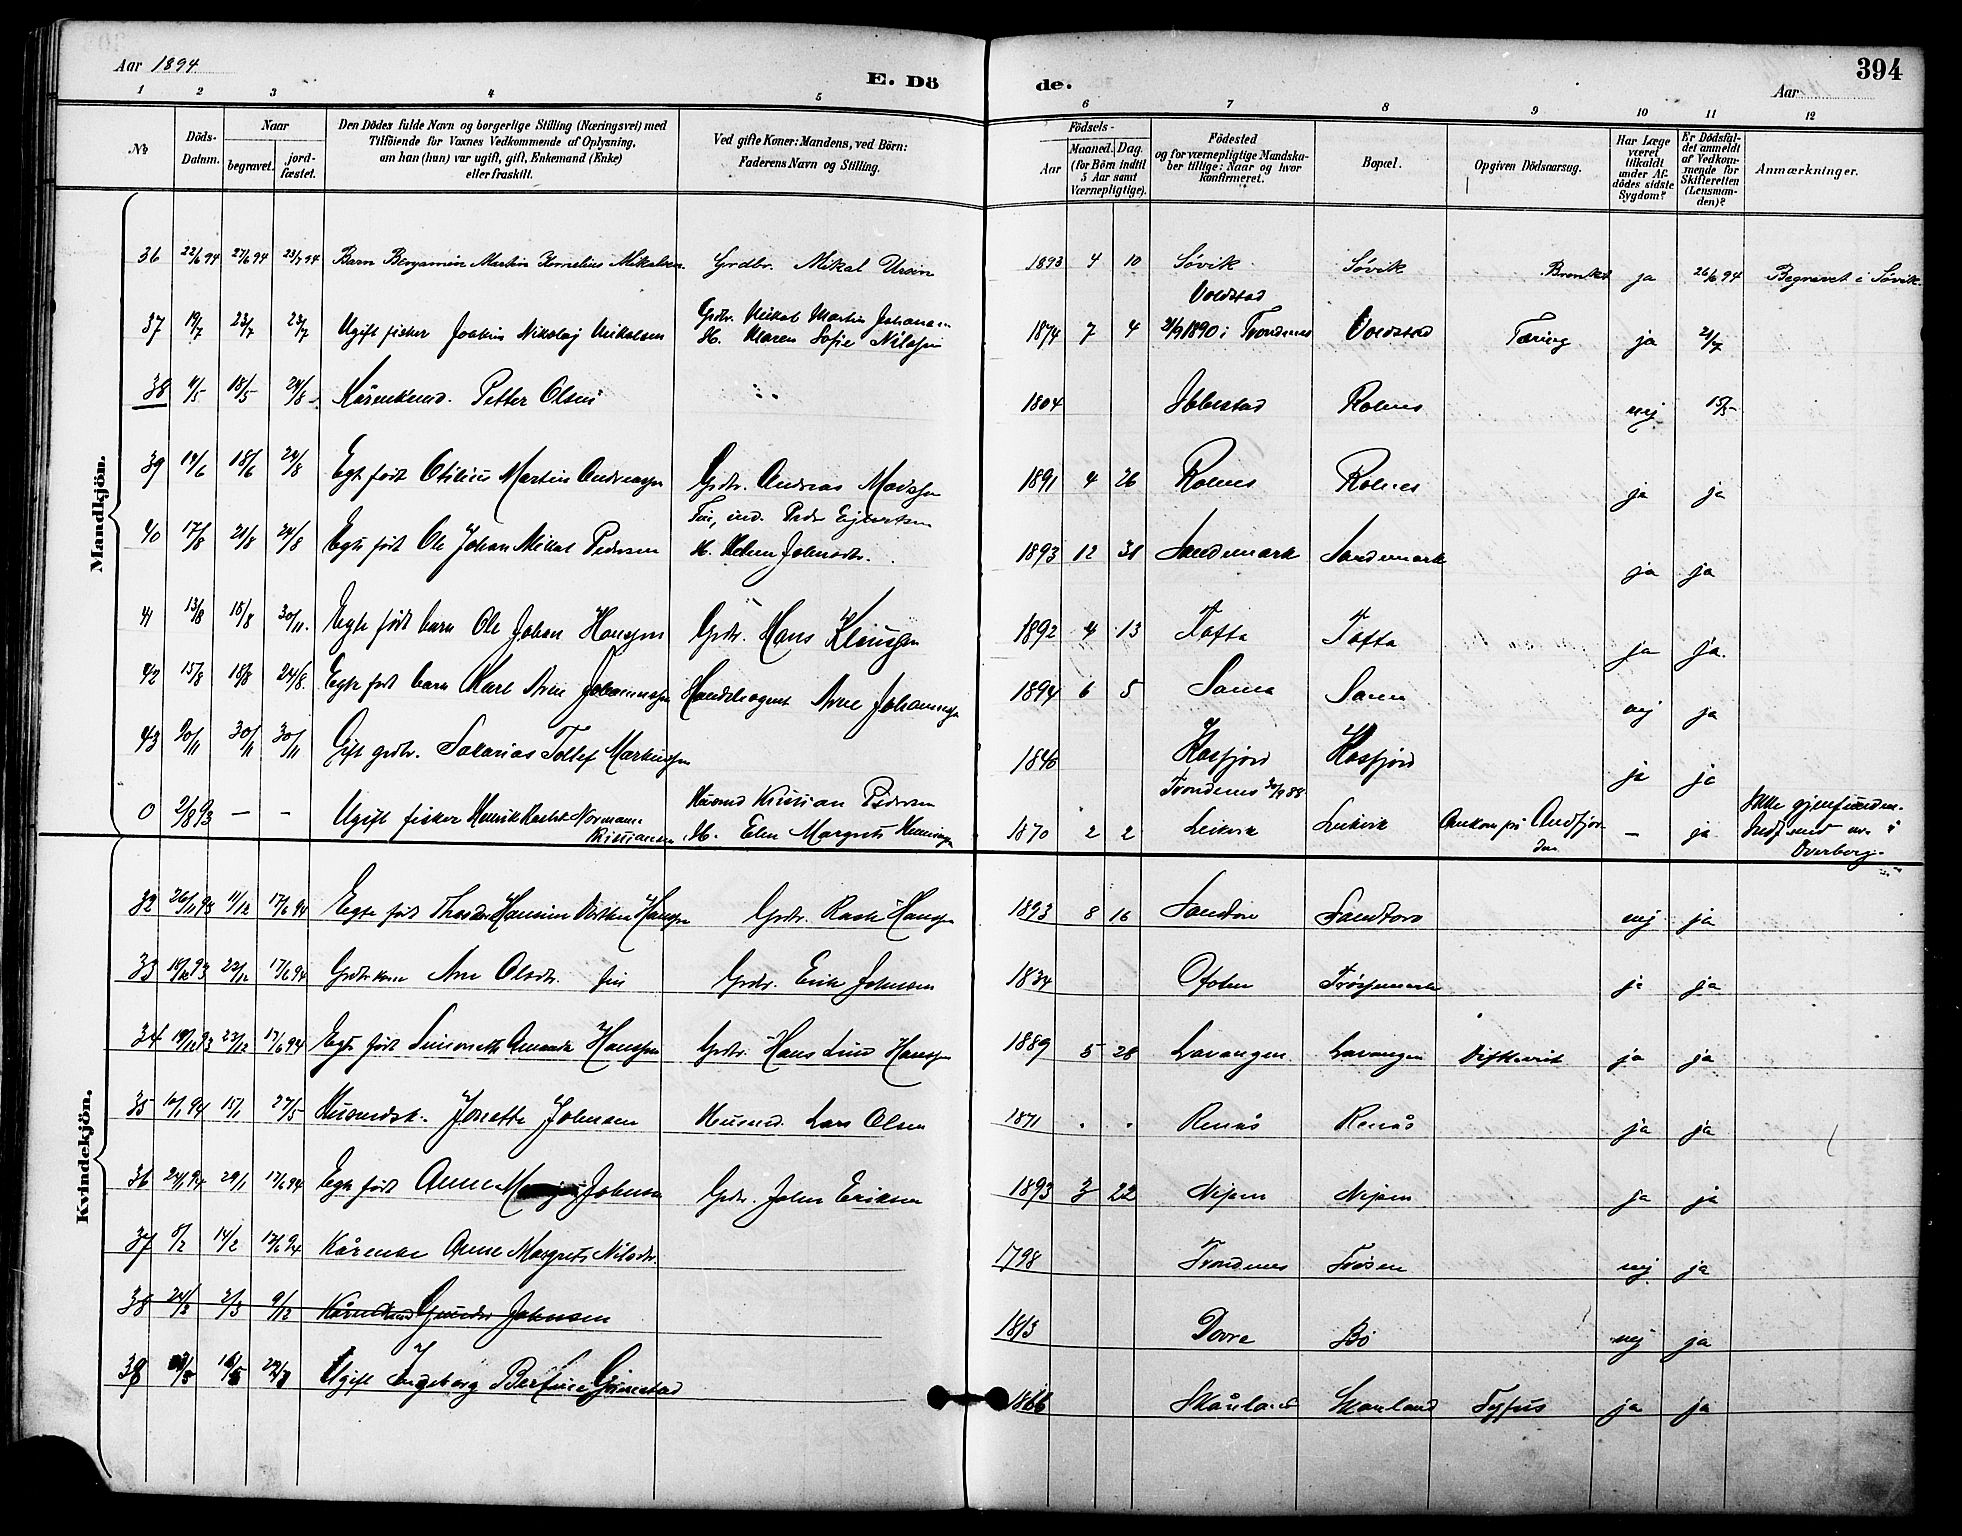 Aar 1894
E. Döde.
Aar
394
1 2 3 4 5 6 7 8 9 10 11 12
No
Döds-Datum.
Naar
begravet.
jord-fæstet.
Den Dödes fulde Navn og borgerlige Stilling (Næringsvei) med
Tilföiende for Voxnes Vedkommende af Oplysning,
om han (hun) var ugift, gift, Enkemand (Enke)
eller fraskilt.
Ved gifte Koner: Mandens, ved Börn:
Faderens Navn og Stilling.
Födsels-
Aar
Maaned. Dag.
(for Börn indtil
5 Aar samt
Værnepligtige).
Födested
og for værnepligtige Mandska-
ber tillige: Naar og hvor
konfirmeret.
Bopæl.
Opgiven Dödsaarsag.
Har Læge
været
tilkaldt
under Af-
dödes sidste
Sygdom?
Er Dödsfal-
det anmeldt
af Vedkom-
mende for
Skifteretten
(Lensman-
den)?
Anmærkninger.
Mandkjön.
36 22/6 94 27/6 94 23/7 94 Barn Benjamin Martin Kornelius Mikalsen Grdbr. Mikal 1893 4 10 Søvik Søvik ja 26/6 94 Begravet i Søvik.
37 19/7 23/7 23/7 Ugift fisker Joakim Nikolaj Mikalsen Grdbr. Mikal Martin Johansen
H. Maren Sofie Nilssen 1874 7 4 Voldstad
21/9 1890 i Trondenes Voldstad Tæring ja 21/7
38 11/5 18/5 24/8 Petter Olsen 1804 Ibbestad Rolnes nej 15/5
39 14/6 18/6 24/8 Egte født Otilius Martin Andreassen Grdbr. Andreas Madssen 1891 4 26 Rolnes Rolnes ja ja
40 17/8 21/8 24/8 Egte født Ole Johan Mikal Pedersen Fin, ind. Peder Ejlertsen
H. Johnsdtr. 1893 12 31 Sandemark Sandemark ja ja
41 13/8 18/8 30/11. Egte født barn Ole Johan Hanssen Grdbr. Hans Klausen 1892 4 13 Tofta Tofta ja ja.
42 15/8 18/8 24/8. Egte født barn Karl Arne Johannessen Handelsagent Arne Johannessen 1894 6 5 Sama Sama nej ja
43 20/11 30/11 30/11 Gift grdbr. Sakarias Tollef 1846 Kasfjord Kasfjord ja ja
0 2/8 93 — — Ugift fisker Henrik Normann
Kristiansen Husmd Kristian Pedersen
H. Elen Margrete Henningsen Trondenes 1870 2 2 Leikvik Leikvik Omkom på Andfjor-
den — ja Ikke gjenfunden.
i
Overberg.
Kvindekjön.
32 26/11 93 11/12 17/6 94 Egte født Hanssen Grdbr. Hanssen 1893 8 16 Sandtorv Sandtorv nej ja
33 18/12 93 22/12 17/6 94 Grdbrkone Ane Olsdtr. fin Grdbr. Erik Johnsen 1834 Ofoten ja ja
34 18/12 93 23/12 17/6 94 Egte født Simonette Amanda Hanssen Grdbr. Hans Lind Hanssen 1889 5 28 Lavangen Lavangen Difterit ja ja
35 10/1 94 15/1 27/5 Husmdsk. Josette Johnsen Husmd. Lars Olsen 1871 . . Renås Renås ja ja
36 24/1 94 29/1 17/6 94 Egte født Anne Johnsen Grdbr. John Eriksen 1893 3 22 ja ja
37 8/2 14/2 17/6 94 Kårenke Anne Margrete Nilsdtr. 1798 Trondenes nej ja
38 24/2 2/3 9/12 Johnsen 1813 Dovre Bö nej ja
39 Ugift Ingeborg Bertine Grinestad 1866 Skånland Skånland Tyfus ja ja